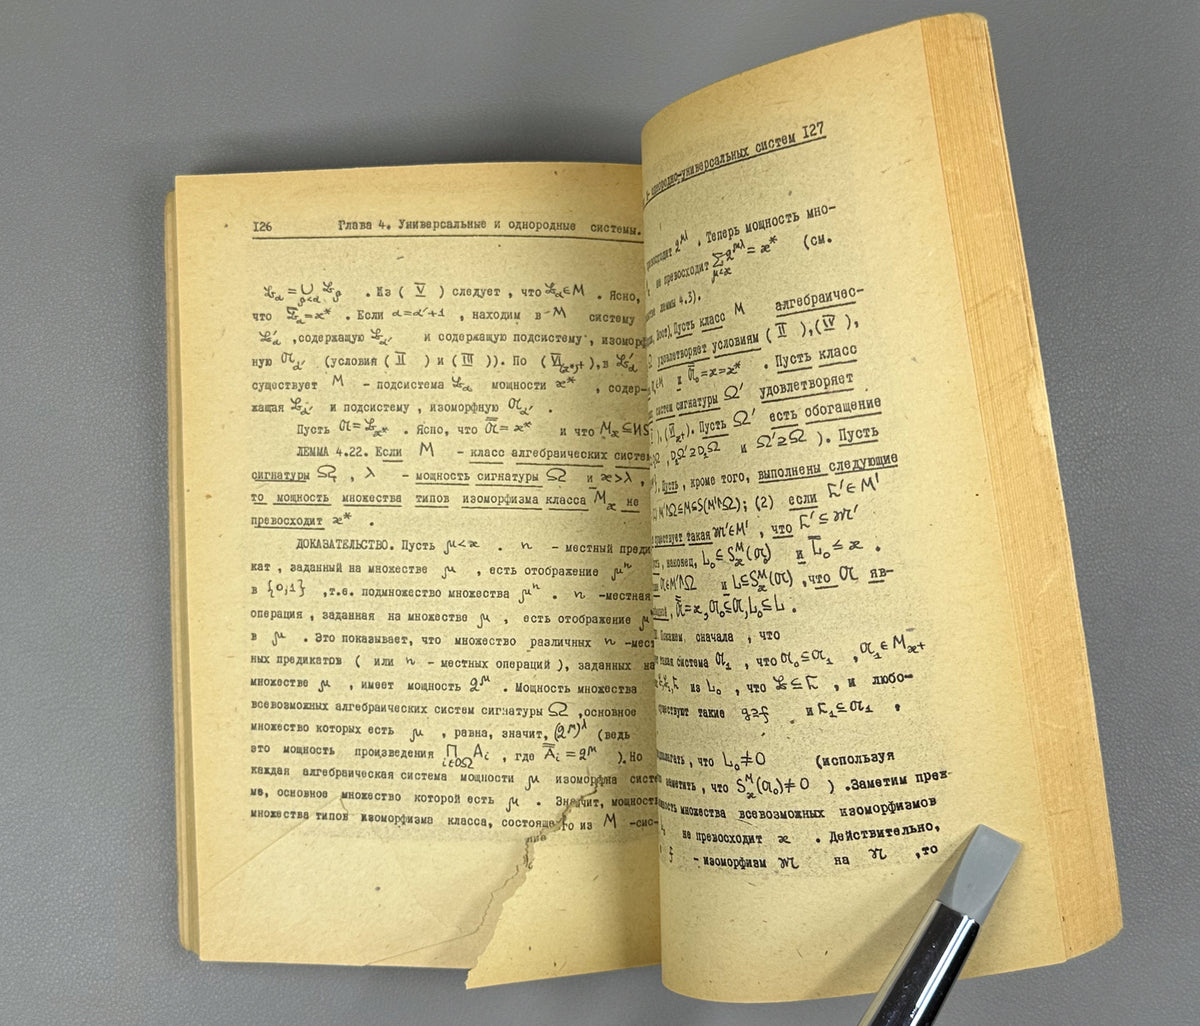 126 Глава 4. Универсальные и однородные системы.
𝔏_α = ∪_{β<α} 𝔏_β . Из ( V ) следует , что 𝔏_α ∈ M . Ясно,
что 𝔏̿_α = ϰ* . Если α = α'+1 , находим в M систему
𝔏'_α , содержащую 𝔏_α' и содержащую подсистему, изоморф
ную 𝔄_α' (условия ( II ) и ( III )). По ( VI_(ϰ*)+ ), в 𝔏'_α
существует M - подсистема 𝔏_α мощности ϰ* , содер-
жащая 𝔏_α' и подсистему , изоморфную 𝔄_α' .
Пусть 𝔄 = 𝔏_ϰ* . Ясно, что 𝔄̿ = ϰ* и что M_ϰ ⊆ ИS
ЛЕММА 4.22. Если M - класс алгебраических систем
сигнатуры Ω , λ - мощность сигнатуры Ω и ϰ > λ ,
то мощность множества типов изоморфизма класса M_ϰ не
превосходит ϰ* .
ДОКАЗАТЕЛЬСТВО. Пусть μ < ϰ . n - местный преди
кат , заданный на множестве μ , есть отображение μⁿ
в {0,1} ,т.е. подмножество множества μⁿ . n -местная
операция , заданная на множестве μ , есть отображение μ
в μ . Это показывает, что множество различных n -мест
ных предикатов ( или n - местных операций ), заданных на
множестве μ , имеет мощность 2^μ . Мощность множества
всевозможных алгебраических систем сигнатуры Ω ,основное
множество которых есть μ , равна, значит, (2^μ)^λ (ведь
это мощность произведения ∏_{i∈DΩ} A_i , где A̿_i = 2^μ ). Но
каждая алгебраическая система мощности μ изоморфна систе
ме, основное множество которой есть μ . Значит, мощность
множества типов изоморфизма класса, состоящего из M -сис-
однородно-универсальных систем 127
2^μλ . Теперь мощность мно-
не превосходит ∑_{μ<ϰ} 2^μλ = ϰ* (см.
леммы 4.3).
Пусть класс M алгебраичес-
удовлетворяет условиям ( II ),(IV ),
и 𝔄̿_0 = ϰ = ϰ* . Пусть класс
систем сигнатуры Ω' удовлетворяет
). (VI_ϰ+). Пусть Ω' есть обогащение
и Ω' ⊇ Ω ). Пусть
Пусть , кроме того, выполнены следующие
M'∧Ω ⊆ M ⊆ S(M'∧Ω); (2) если 𝔏' ∈ M'
существует такая 𝔐' ∈ M' , что 𝔏' ⊆ 𝔐'
, наконец, L_0 ⊆ S_ϰ^M(𝔄) и L̿_0 ⩽ ϰ .
𝔄 ∈ M'∧Ω и L ⊆ S_ϰ^M(𝔄) ,что 𝔄 яв-
𝔄̿ = ϰ, 𝔄_0 ⊆ 𝔄, L_0 ⊆ L .
Покажем сначала , что
система 𝔄_1 , что 𝔄_0 ⊆ 𝔄_1 , 𝔄_1 ∈ M_ϰ+
из L_0 , что , и любо-
такие g ⊇ f и ⊆ 𝔄_1 ,
, что L_0 ≠ 0 (используя
заметить , что S_ϰ^M(𝔄_0) ≠ 0 ) .Заметим преж-
множества всевозможных изоморфизмов
не превосходит ϰ . Действительно,
f - изоморфизм 𝔐 на 𝔑 ,то